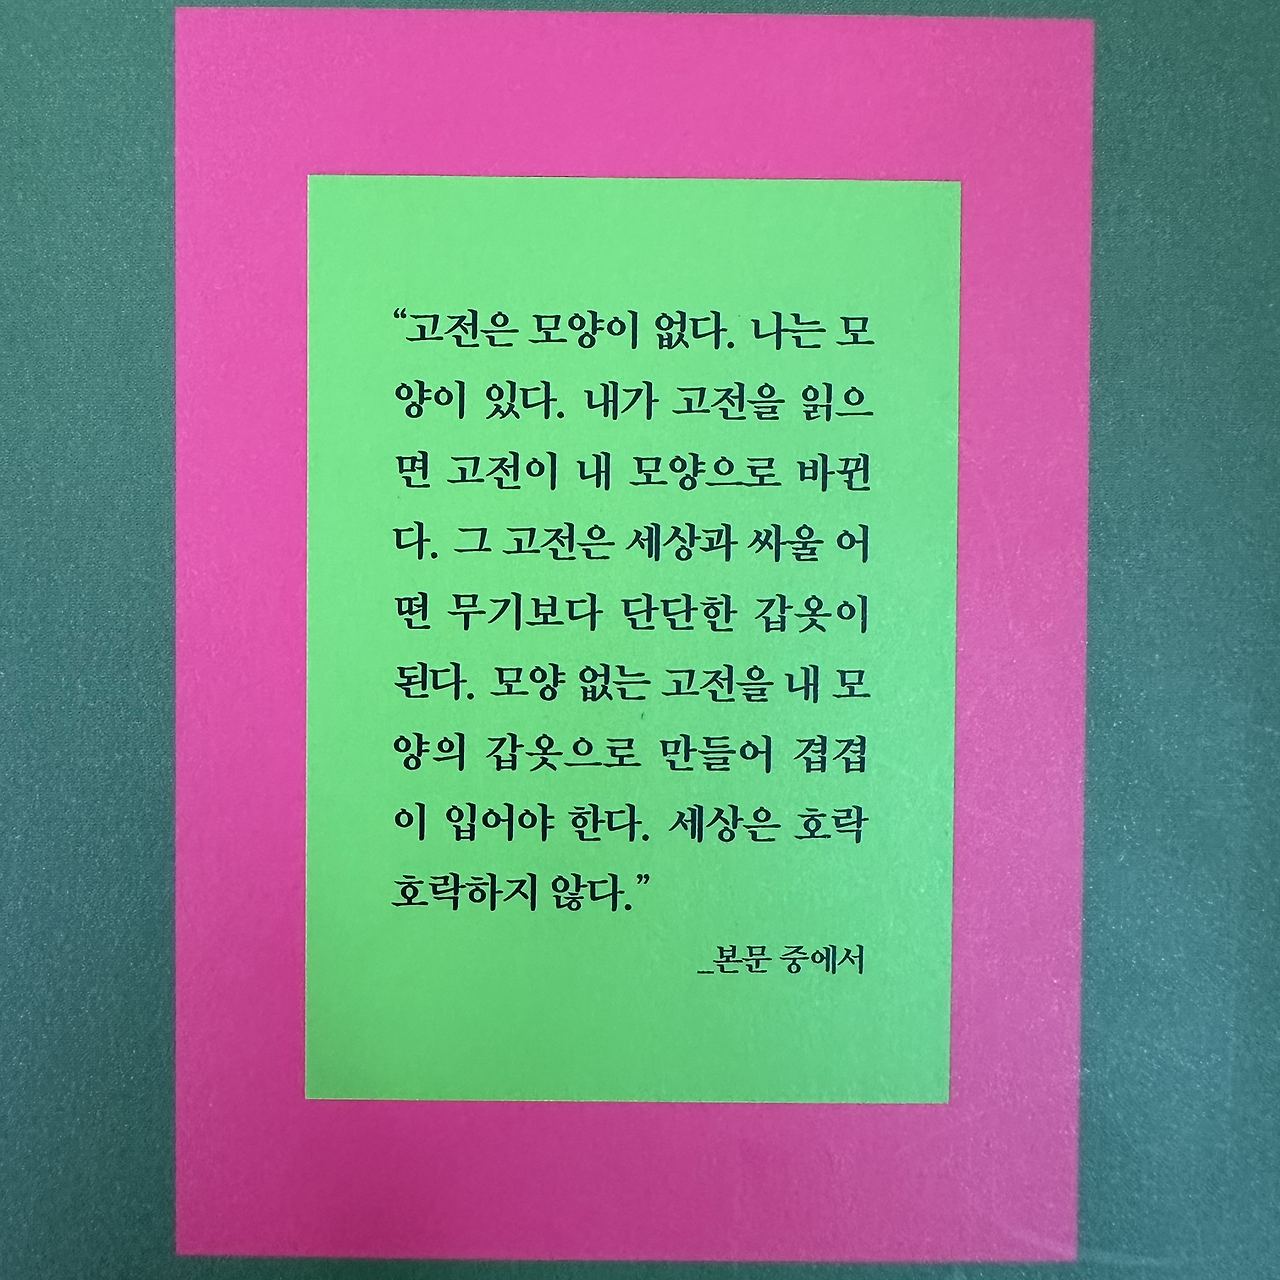 “고전은 모양이 없다. 나는 모
양이 있다. 내가 고전을 읽으
면 고전이 내 모양으로 바뀐
다. 그 고전은 세상과 싸울 어
떤 무기보다 단단한 갑옷이
된다. 모양 없는 고전을 내 모
양의 갑옷으로 만들어 겹겹
이 입어야 한다. 세상은 호락
호락하지 않다.”
_본문 중에서